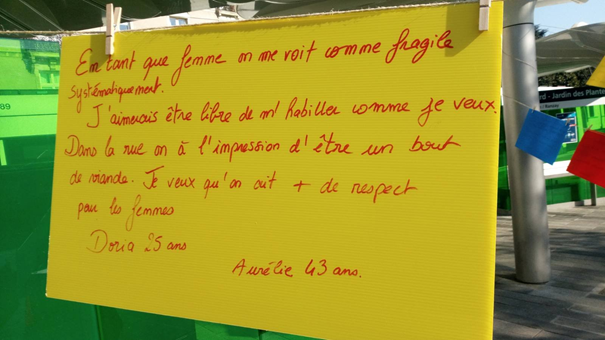 En tant que femme on me voit comme fragile
systématiquement.
J'aimerais être libre de m'habiller comme je veux.
Dans la rue on à l'impression d'être un bout
de viande. Je veux qu'on ait + de respect
pour les femmes
Doria 25 ans
Aurélie 43 ans.
89
Jardin des Plantes